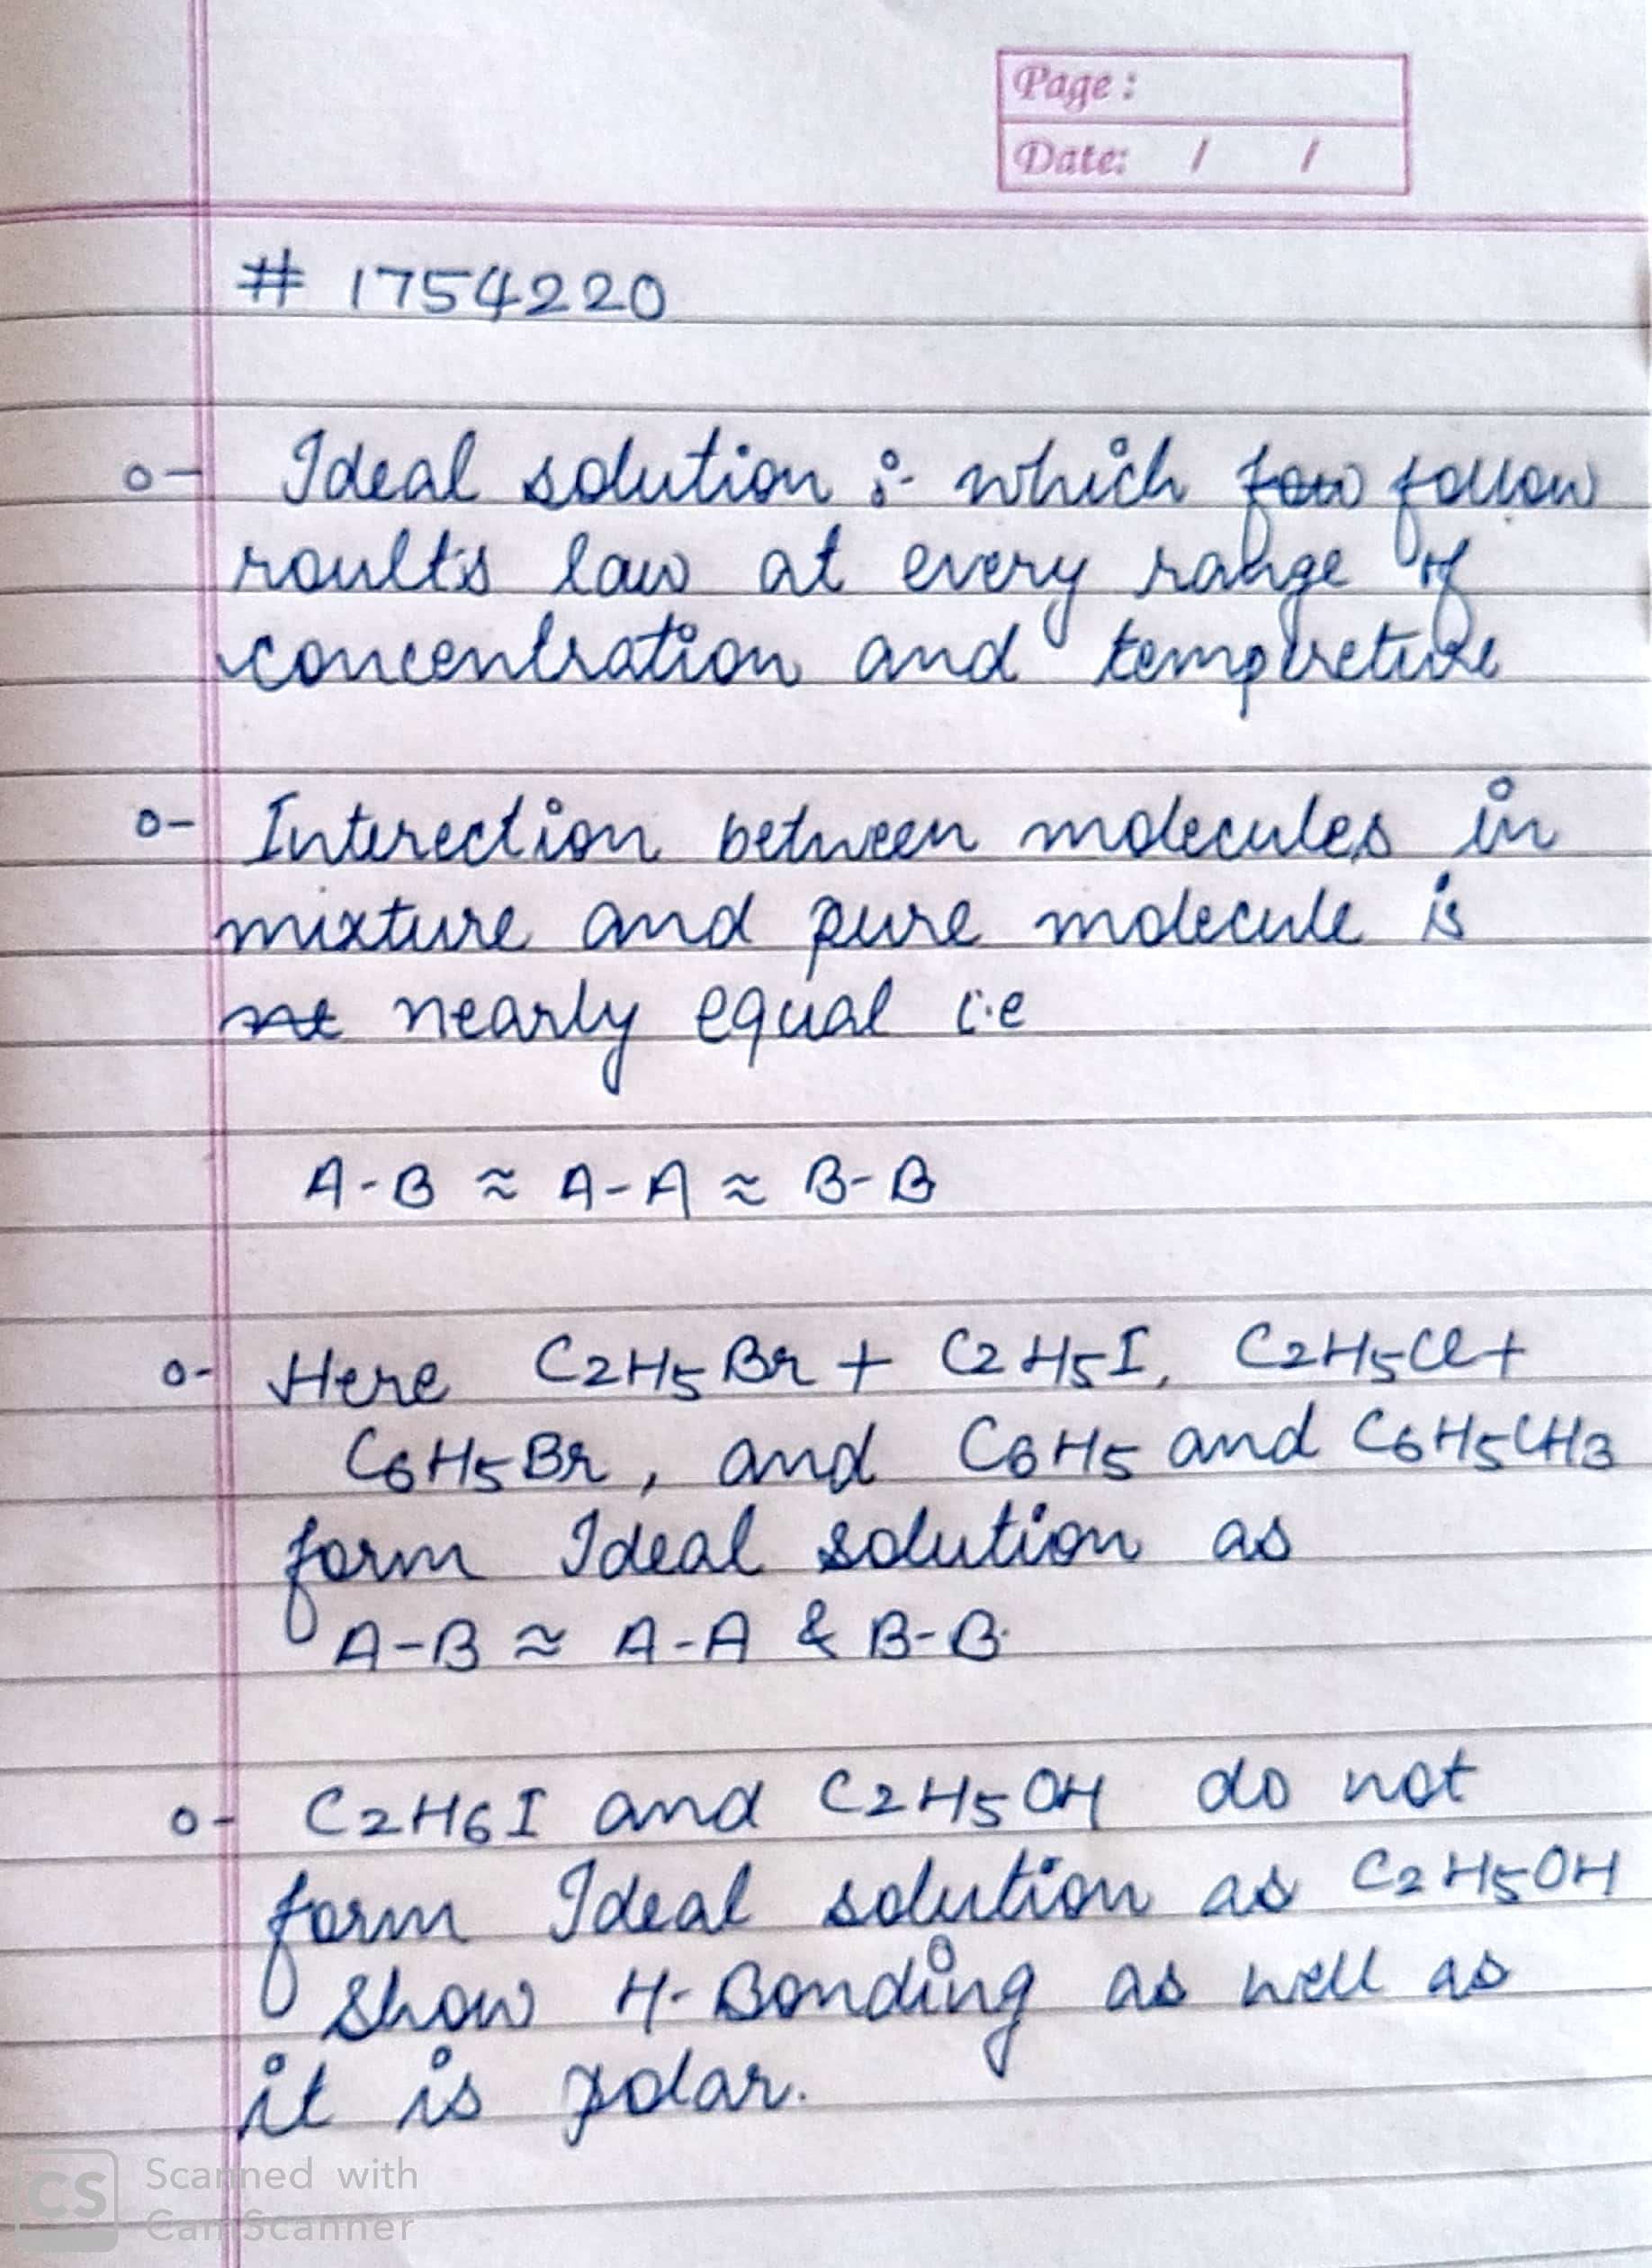 Page :
Date: / /
# 1754220
o- Ideal solution :- which fow follow
roults law at every range of
concentration and tempreture
o- Interection between molecules in
mixture and pure molecule is
nt nearly equal i.e
A-B ≈ A-A ≈ B-B
o- Here C2H5Br + C2H5I, C2H5Cl +
C6H5Br, and C6H5 and C6H5CH3
form Ideal solution as
A-B ≈ A-A & B-B.
o- C2H6I and C2H5OH do not
form Ideal solution as C2H5OH
show H-Bonding as well as
it is polar.
CS Scanned with
CamScanner